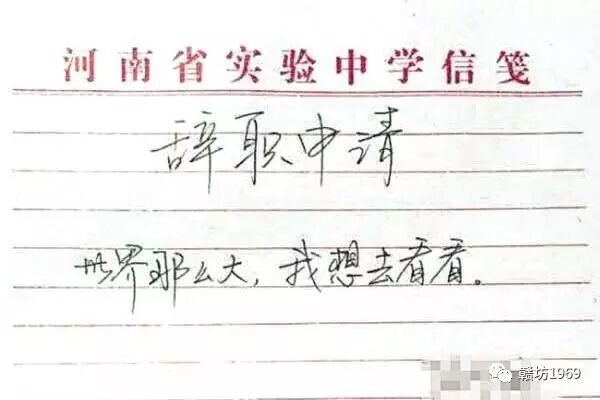 河南省实验中学信笺
辞职申请
世界那么大，我想去看看。
赣坊1969